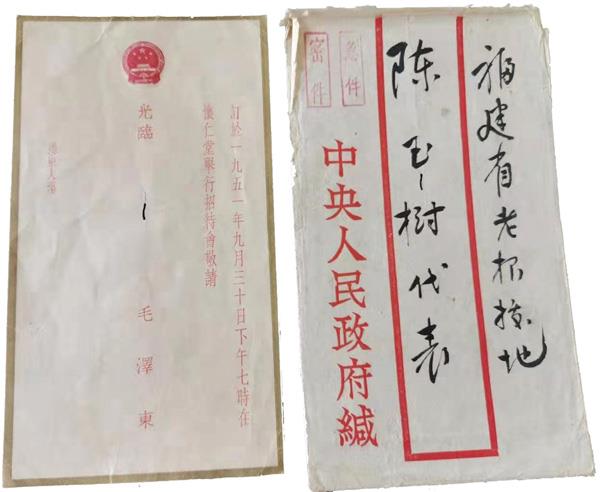 訂於一九五一年九月三十日下午七時在
懷仁堂舉行招待會敬請
光臨
毛澤東
福建省老根據地
陈玉樹代表
急件
密件
中央人民政府緘